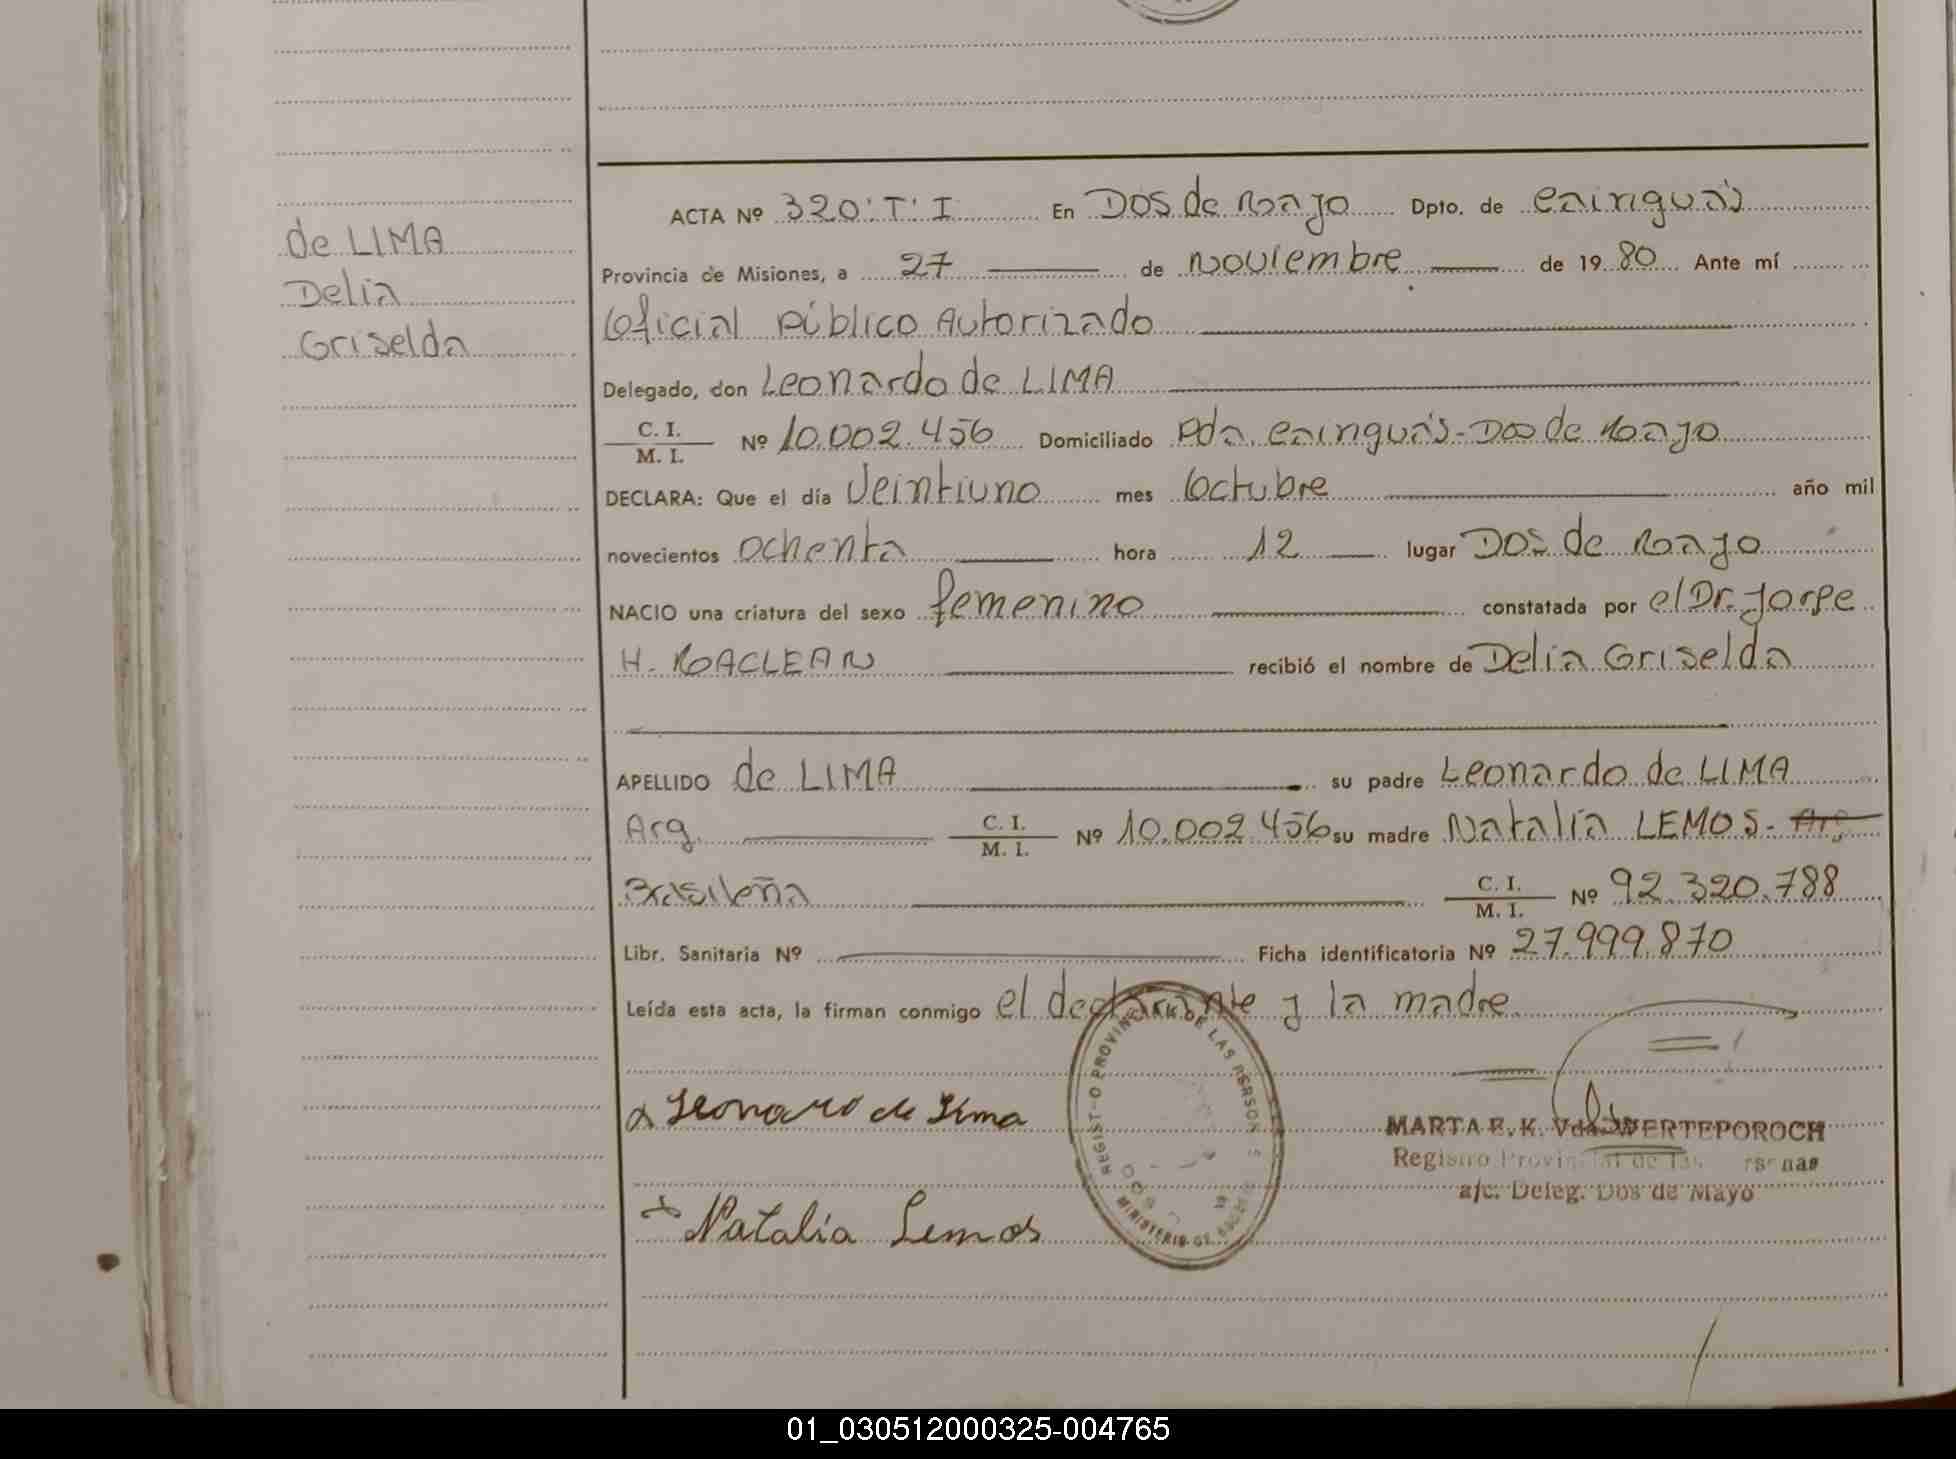 de LIMA
Delia
Griselda
ACTA Nº 320 T I En Dos de Mayo Dpto. de Cainguás
Provincia de Misiones, a 27 de Noviembre de 1980 Ante mí
Oficial Público Autorizado
Delegado, don Leonardo de LIMA
C. I.
M. I. Nº 10.002.456 Domiciliado Pda. Cainguás - Dos de Mayo
DECLARA: Que el día Veintiuno mes Octubre año mil
novecientos ochenta hora 12 lugar Dos de Mayo
NACIO una criatura del sexo femenino constatada por el Dr. Jorge
H. MACLEAN recibió el nombre de Delia Griselda
APELLIDO de LIMA su padre Leonardo de LIMA
Arg. C. I.
M. I. Nº 10.002.456 su madre Natalia LEMOS - Arg
Brasileña C. I.
M. I. Nº 92.320.788
Libr. Sanitaria Nº Ficha identificatoria Nº 27.999.870
Leída esta acta, la firman conmigo el declarante y la madre.
x Leonardo de Lima
MARTA E. K. Vda. WERTEPOROCH
Registro Provincial de las Personas
a/c. Deleg. Dos de Mayo
REGISTRO PROVINCIAL DE LAS PERSONAS
MINISTERIO DE
x Natalia Lemos
01_030512000325-004765